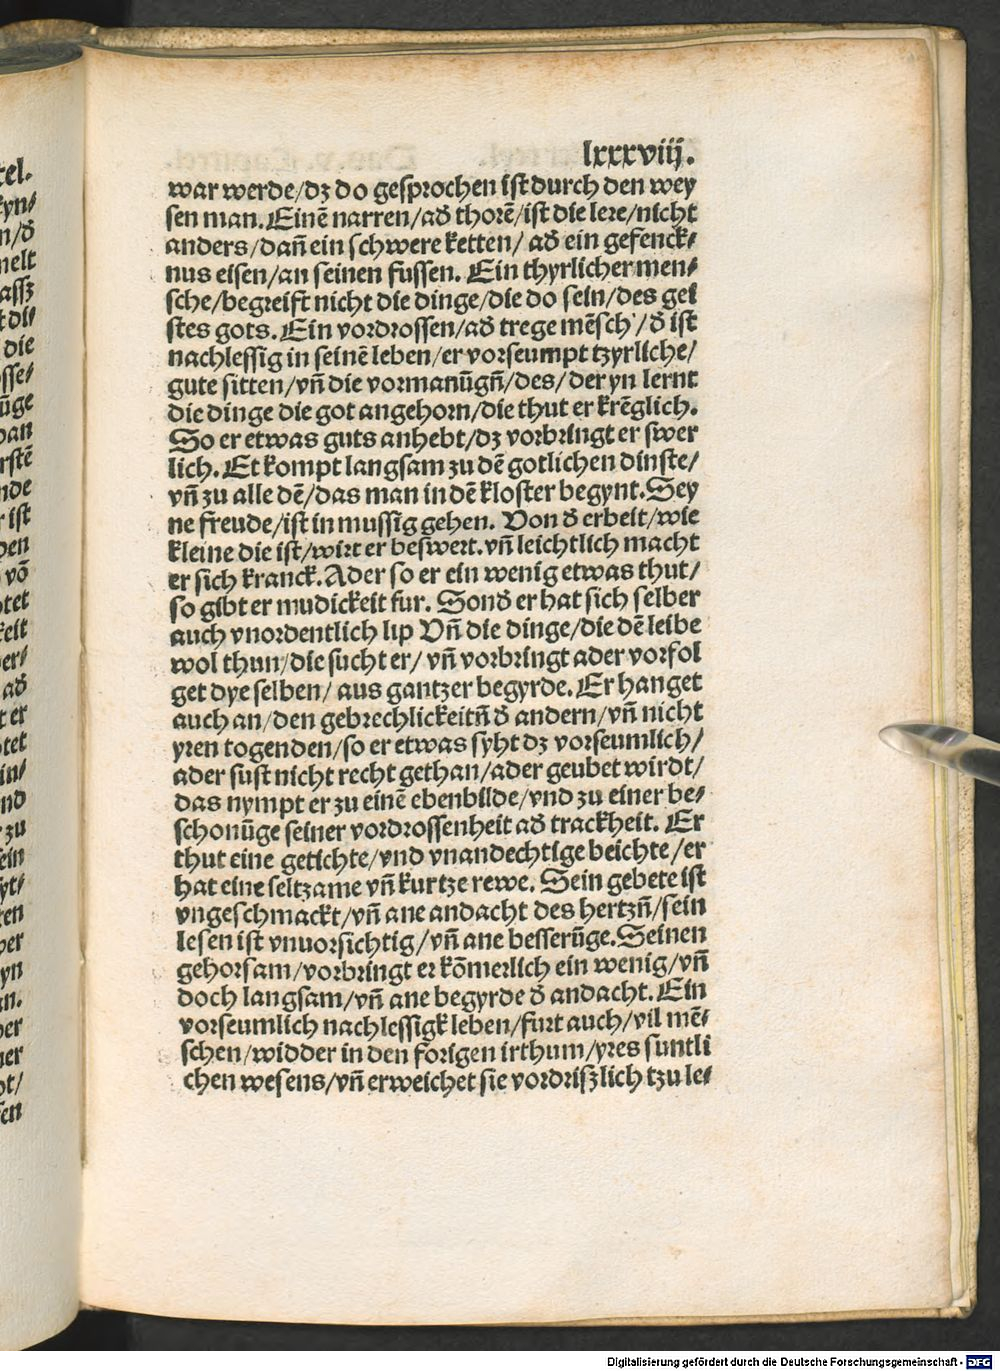 lxxxviij.
war werde/dz do gesprochen ist durch den wey
sen man. Einē narren/ad' thorē/ist die lere/nicht
anders/dañ ein schwere ketten/ ad' ein gefenck⸗
nus eisen/an seinen fussen. Ein thyrlicher men⸗
sche/begreift nicht die dinge/die do sein/des gei
stes gots. Ein vordrossen/ad' trege mēsch'/d' ist
nachlessig in seinē leben/er vorseumpt tzyrliche/
gute sitten/vñ die vormanūgñ/des/der yn lernt
die dinge die got angehorn/die thut er krēglich.
So er etwas guts anhebt/dz vorbringt er swer
lich. Et kompt langsam zu dē gotlichen dinste/
vñ zu alle dē/das man in dē kloster begynt. Sey
ne freude/ist in mussig gehen. Von d' erbeit/wie
kleine die ist/wirt er beswert. vñ leichtlich macht
er sich kranck. Ader so er ein wenig etwas thut/
so gibt er mudickeit fur. Sond' er hat sich selber
auch vnordentlich lip Vñ die dinge/die dē leibe
wol thun/die sucht er/ vñ vorbringt ader vorfol
get dye selben/ aus gantzer begyrde. Er hanget
auch an/den gebrechlickeitñ d' andern/vñ nicht
yren togenden/so er etwas syht dz vorseumlich/
ader sust nicht recht gethan/ader geubet wirdt/
das nympt er zu einē ebenbilde/vnd zu einer be⸗
schonūge seiner vordrossenheit ad' trackheit. Er
thut eine getichte/vnd vnandechtige beichte/er
hat eine seltzame vñ kurtze rewe. Sein gebete ist
vngeschmackt/vñ ane andacht des hertzñ/sein
lesen ist vnuorsichtig/vñ ane besserūge. Seinen
gehorsam/vorbringt er kōmerlich ein wenig/vñ
doch langsam/vñ ane begyrde d' andacht. Ein
vorseumlich nachlessigk leben/furt auch/vil mē⸗
schen/widder in den forigen irthum/yres suntli
chen wesens/vñ erweichet sie vordrißlich tzu le⸗
Digitalisierung gefördert durch die Deutsche Forschungsgemeinschaft - DFG